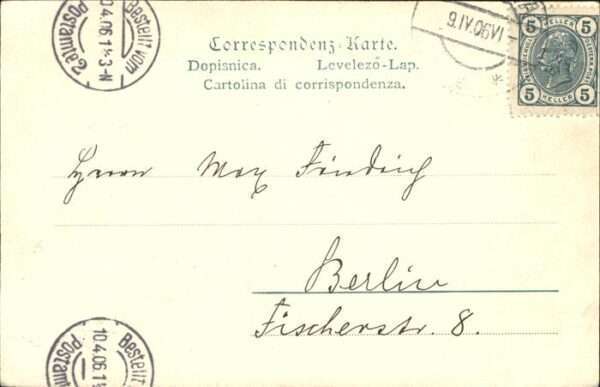 Bestellt vom
Postamte 2
10.4.06.1¼-3-N
9.IV.06.VI
5 5
HELLER
5 5
HELLER
Correspondenz-Karte.
Dopisnica. Levelező-Lap.
Cartolina di corrispondenza.
Herrn Max Friedrich
Berlin
Fischerstr. 8.
Bestellt
Postamte
10.4.06.1